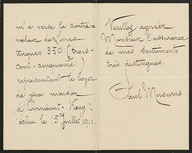 m'a versé la contre-
valeur des livres
turques 350 (trois-
cent-cinquante)
représentant le loyer
de ma maison
échu le 15 Juillet 1911.
Veuillez agréer
Monsieur l'assurance
de mes sentiments
très distingués.
Paul